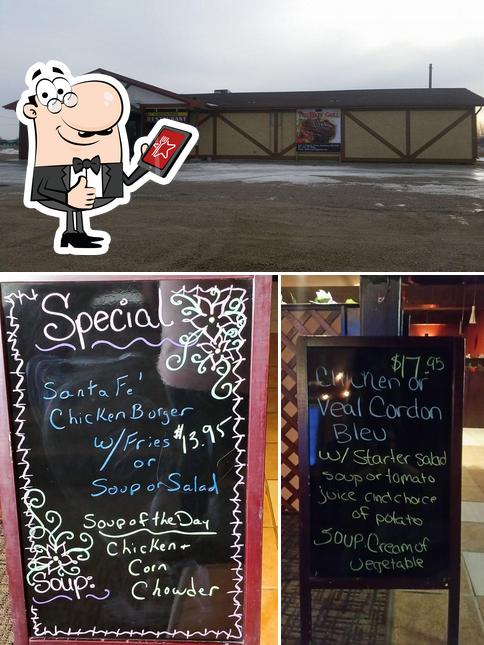 RESTAURANT
Special
Santa Fe'
Chicken Borger
w/Fries $13.95
or
Soup or Salad
Soup of the Day
Chicken +
Corn
Soup: Chowder
$17.95
Chicken or
Veal Cordon
Bleu
w/ Starter salad
soup or tomato
juice and choice
of potato
Soup: Cream of
Vegetable